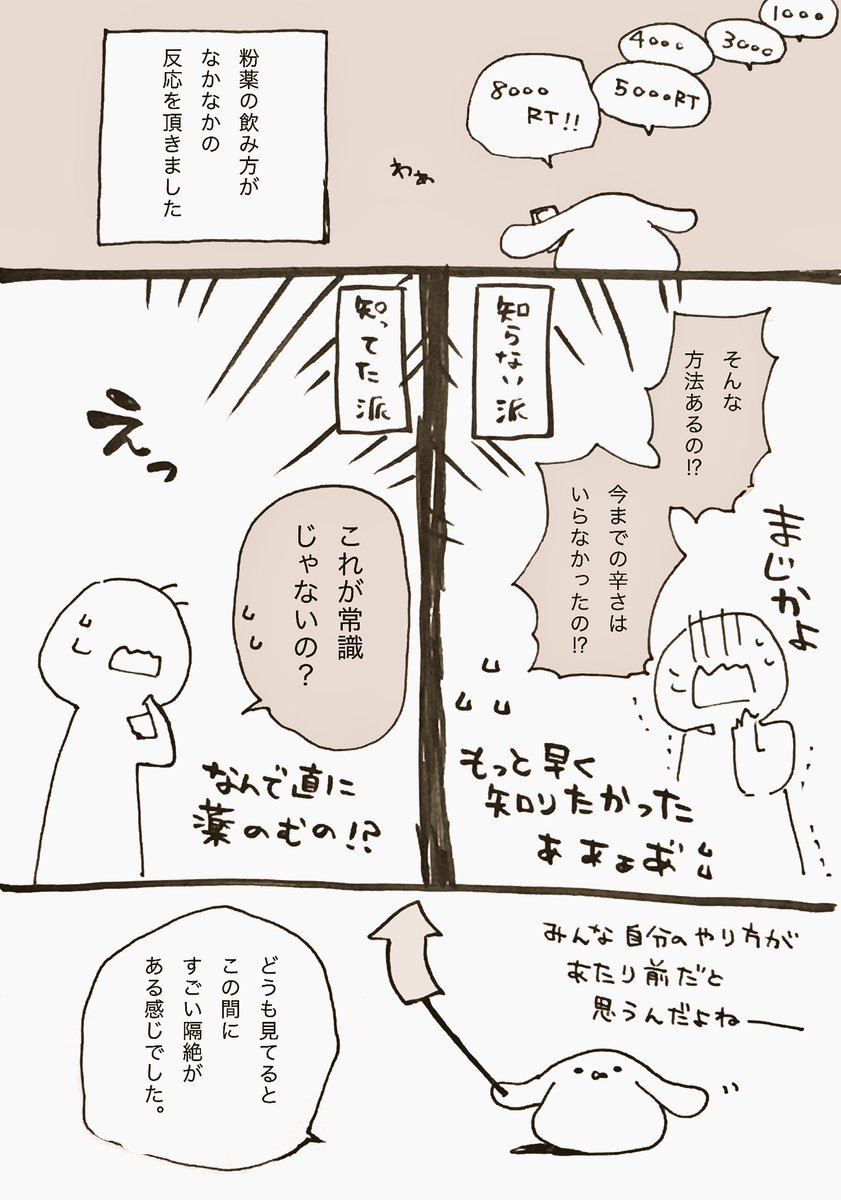 1000
3000
4000
5000RT
8000
RT!!
わぁ
粉薬の飲み方が
なかなかの
反応を頂きました
知らない派
そんな
方法あるの!?
今までの辛さは
いらなかったの!?
まじかよ
もっと早く
知りたかった
ああぁあ
知ってた派
えっ
これが常識
じゃないの?
なんで直に
薬のむの!?
みんな自分のやり方が
あたり前だと
思うんだよねー
どうも見てると
この間に
すごい隔絶が
ある感じでした。